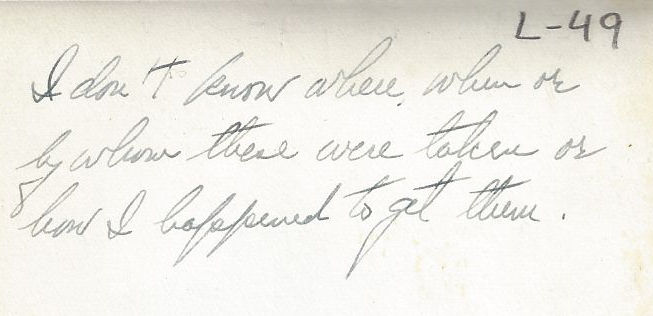 L-49
I don't know where, when or
by whom these were taken or
how I happened to get them.